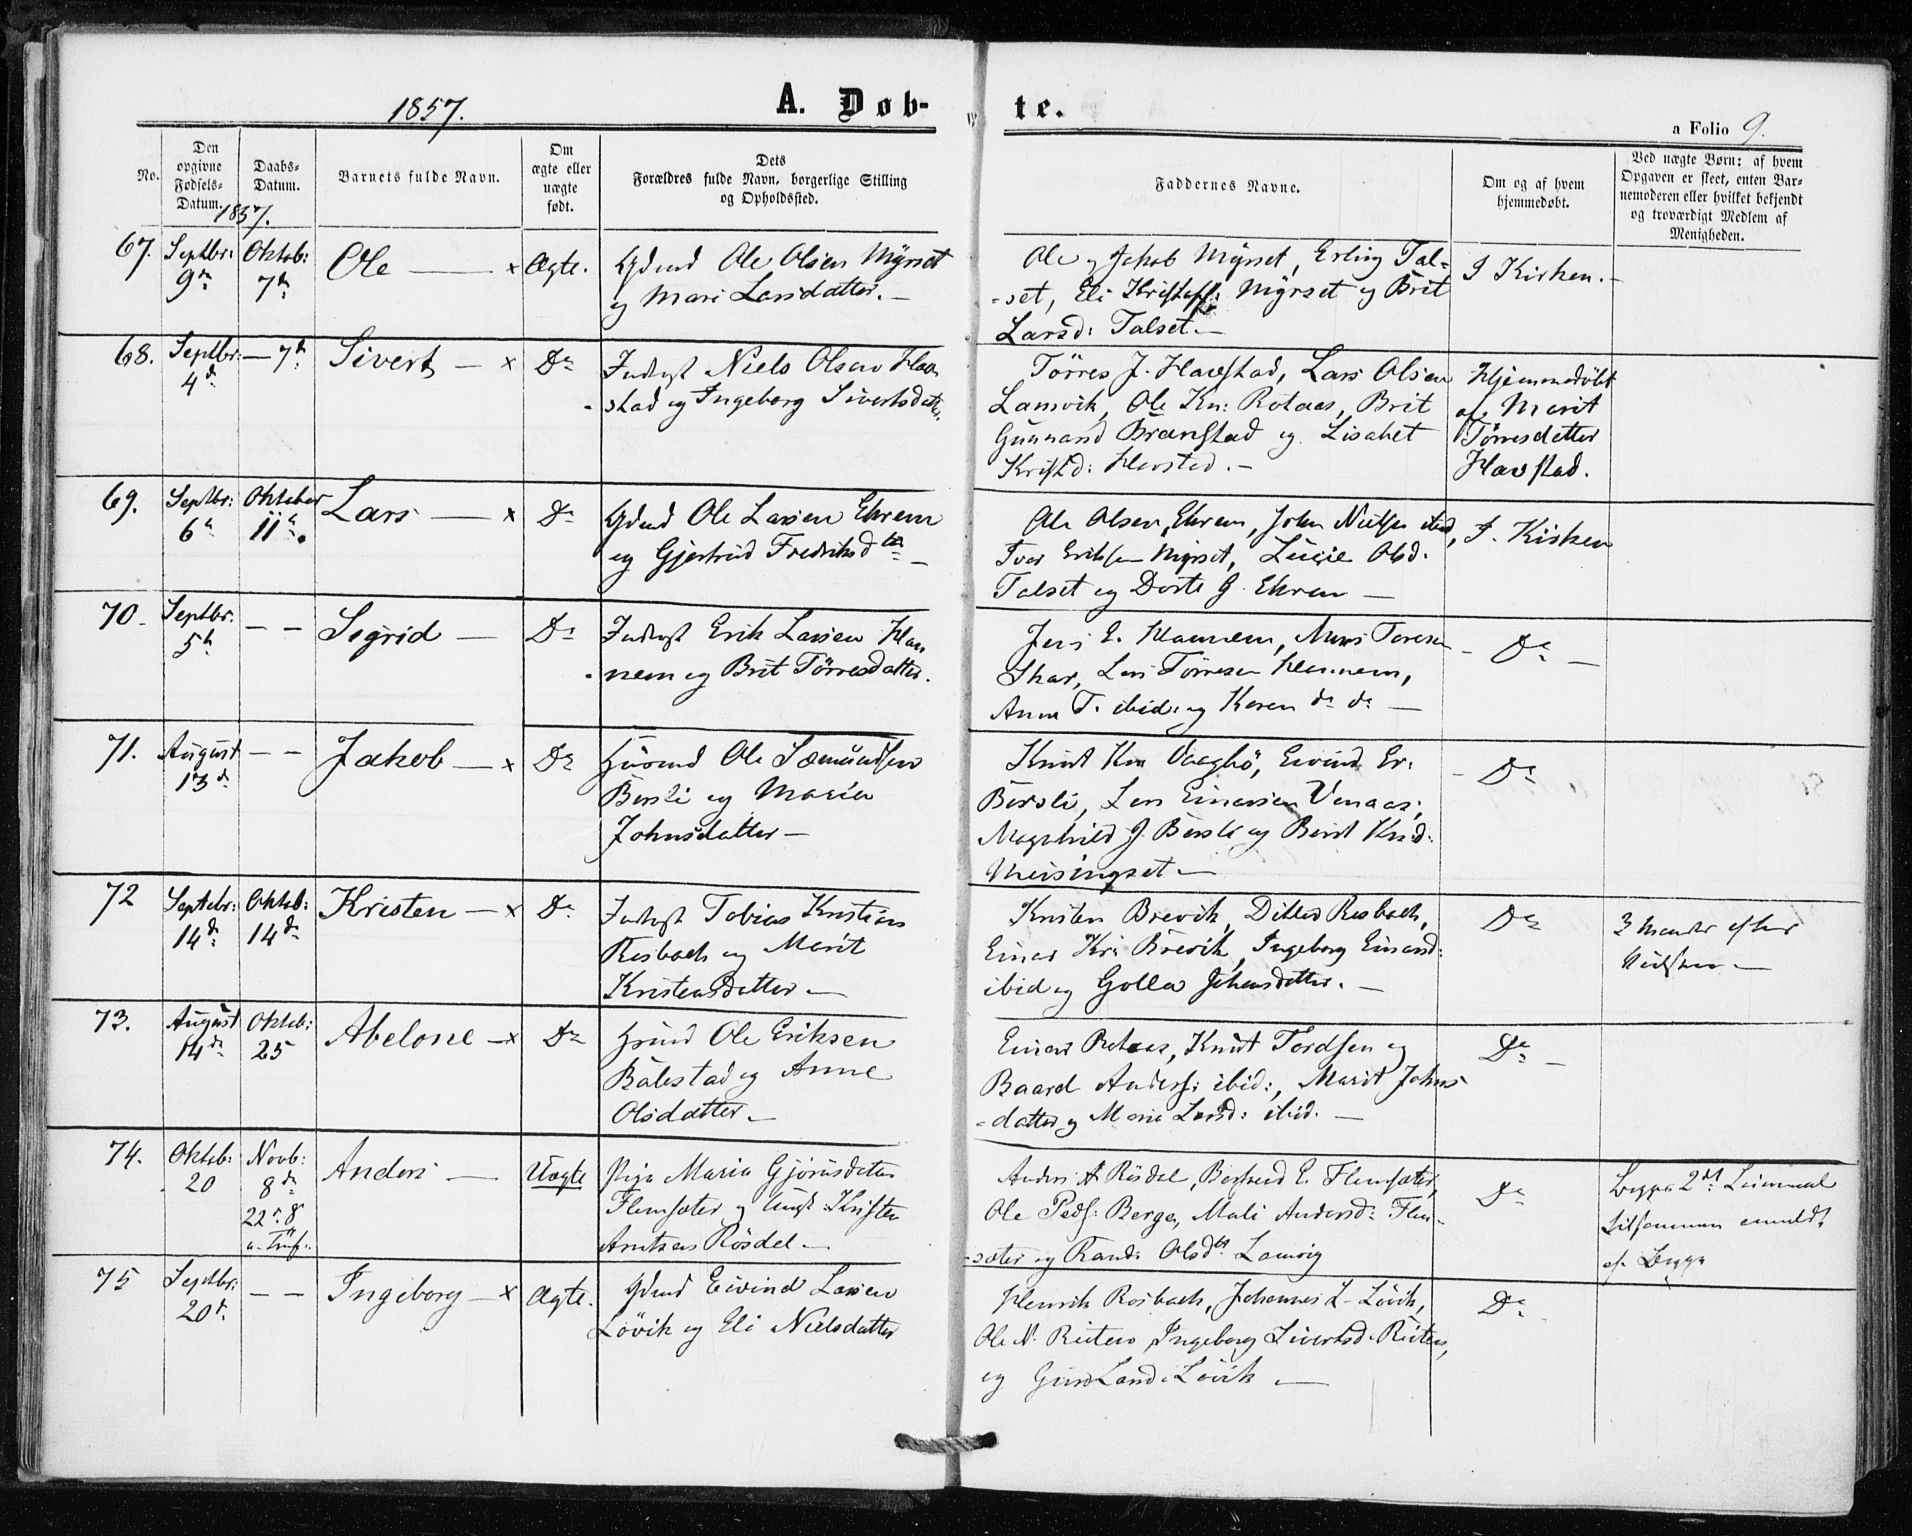 1857. A. Døb-
te.
a Folio 9.
No. Den opgivne Fødsels-Datum. Daabs-Datum. Barnets fulde Navn. Om ægte eller uægte født. Dets Forældres fulde Navn, borgerlige Stilling og Opholdssted. Faddernes Navne. Om og af hvem hjemmedøbt. Ved uægte Børn: af hvem Opgaven er skeet, enten Barnemoderen eller hvilket bekjendt og troværdigt Medlem af Menigheden.
1857.
67. Septbr: 9de Oktob: 7de Ole — x Ægte. Gdmd Ole Olsen Myrset
og Mari Larsdatter. —
Ole og Jakob Myrset, Erling Tal-
-set, Eli Kristoff: Myrset og Brit
Larsd: Talset. —
I Kirken. —
68. Septbr: 4de — 7de Sivert — x Do Indergst Niels Olsen Hav-
-stad og Ingeborg Sivertsdatter
Tørres J. Havstad, Lars Olsen
Lamvik, Ole Kn: Rotaas, Brit
Gunnarsd Brænstad og Lisabet
Kristd: Havstad. —
Hjemmedøbt
af Marit
Tørresdatter
Havstad.
69. Septbr: 6te Oktober 11te Lars — x Do Gdmd Ole Larsen Ehrem
og Gjertrud Fredriksdtr —
Ole Olsen Ehrem, John Nielsen ibid,
Iver Eriksen Myrset, Lucie Olsd.
Talset og Dorte J. Ehrem —
I. Kirken
70. Septbr. 5te — — Sigrid — Do Indergst Erik Larsen Han-
-nem og Brit Tørresdatter.
Jens E. Hannem, Toresen
Skar, Lars Tørresen Hannem,
Anne T. ibid: og Karen do do —
Do —
71. August 13de — — Jakob — x Do Husmd Ole Sæmundsen
Bersli og Maria
Johnsdatter —
Knut Kn Vaagbø, Eivind Er:
Bersli, Lars Einarsen Venaas,
Magnhild J. Bersli og Berit Knd:
Meisingset —
Do
72 Septebr: 14de Oktob: 14de Kristen — x Do Indergst Tobias Kristians
Resbach og Marit
Kristensdatter —
Kristen Brevik, Ditlev Resbach,
Einar Kr: Brevik, Ingeborg Einarsd:
ibid og Golla Johansdatter. —
Do
3 Maaneder efter
73. August 14de Oktob: 25 Abelone — x Do Husmd Ole Eriksen
Bolestad og Anne
Olsdatter —
Einar Rotaas, Knut Tordsen og
Baard Anders: ibid:, Marit Johns-
-datter og Marie Larsd: ibid. —
Do —
74. Oktob: 20 Novb: 8de Anders — Uægte Pige Maria Gjørusdatter
Flemsæter og Ungk: Kristen
Arntsen Rösdel —
22de 8
Anders A Rösdel, E. Flemsæter,
Ole Peds: Berge, Mali Andersd: Flem-
-sæter og Randi Olsdtr Lamvig
Do
Begges 2det Leiermaal
tilsammen anmeldt
af Begge
75 Septbr: 20de — — Ingeborg — x Ægte. Gdmd Eivind Larsen
Lövik og Eli Nielsdatter
Henrik Rosbach, Johannes L. Lövik,
Ole N. Reiten, Ingeborg Sivertsd. Reiten,
og Larsd. Lövik —
Do